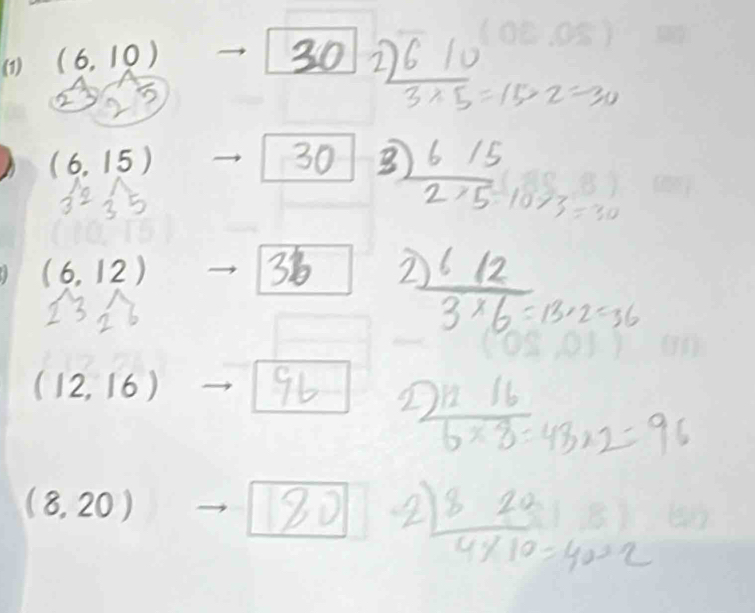 (1) (6, 10) → 30 2) 6 10
2 3 2 5 3 × 5 = 15 × 2 = 30
(6, 15) → 30 3) 6 15
3 2 3 5 2 × 5 = 10 × 3 = 30
(6, 12) → 36 2) 6 12
2 3 2 6 3 × 6 = 18 × 2 = 36
(12, 16) → 96 2) 12 16
6 × 8 = 48 × 2 = 96
(8, 20) → 80 2) 8 20
4 × 10 = 40 × 2